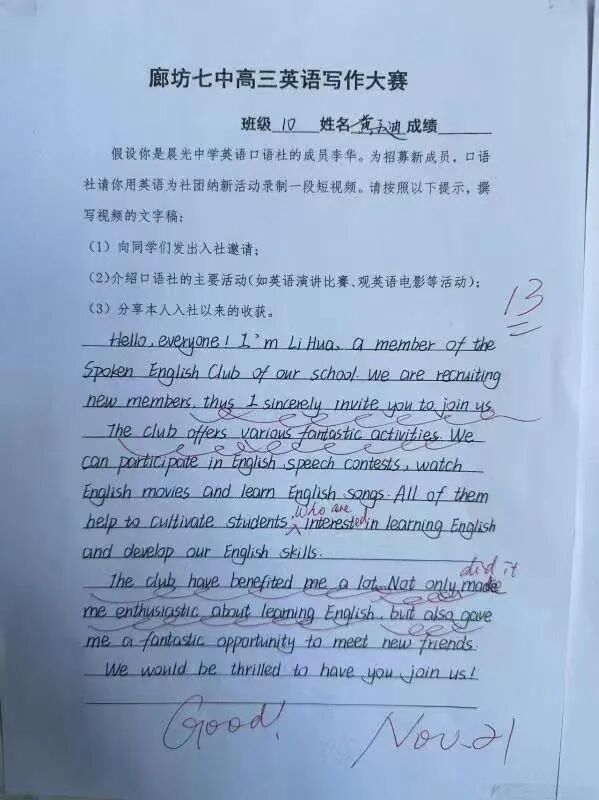 廊坊七中高三英语写作大赛
班级 10 姓名 黄 成绩
假设你是晨光中学英语口语社的成员李华。为招募新成员，口语
社请你用英语为社团纳新活动录制一段短视频。请按照以下提示，撰
写视频的文字稿：
（1）向同学们发出入社邀请；
（2）介绍口语社的主要活动（如英语演讲比赛、观英语电影等活动）；
（3）分享本人入社以来的收获。
13
Hello, everyone! I'm Li Hua, a member of the
Spoken English Club of our school. We are recruiting
new members, thus I sincerely invite you to join us.
The club offers various fantastic activities. We
can participate in English speech contests, watch
English movies and learn English songs. All of them
help to cultivate students' who are interested in learning English
and develop our English skills.
did it
The club have benefited me a lot. Not only made
me enthusiastic about learning English, but also gave
me a fantastic opportunity to meet new friends.
We would be thrilled to have you join us!
Good! Nov. 21